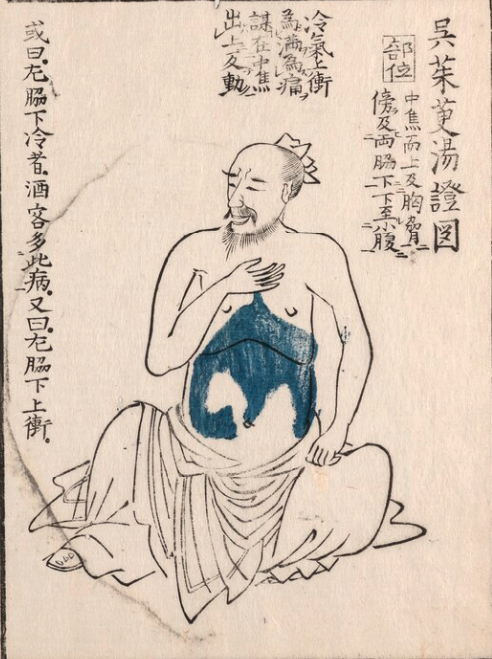 呉茱萸湯證図
部位
中焦而上及胸脅
傍及両脇下下至小腹
冷氣上衝
為満為痛
謀在中焦
出上動
或曰。左脇下冷者。酒客多此病。又曰。左脇下上衝。